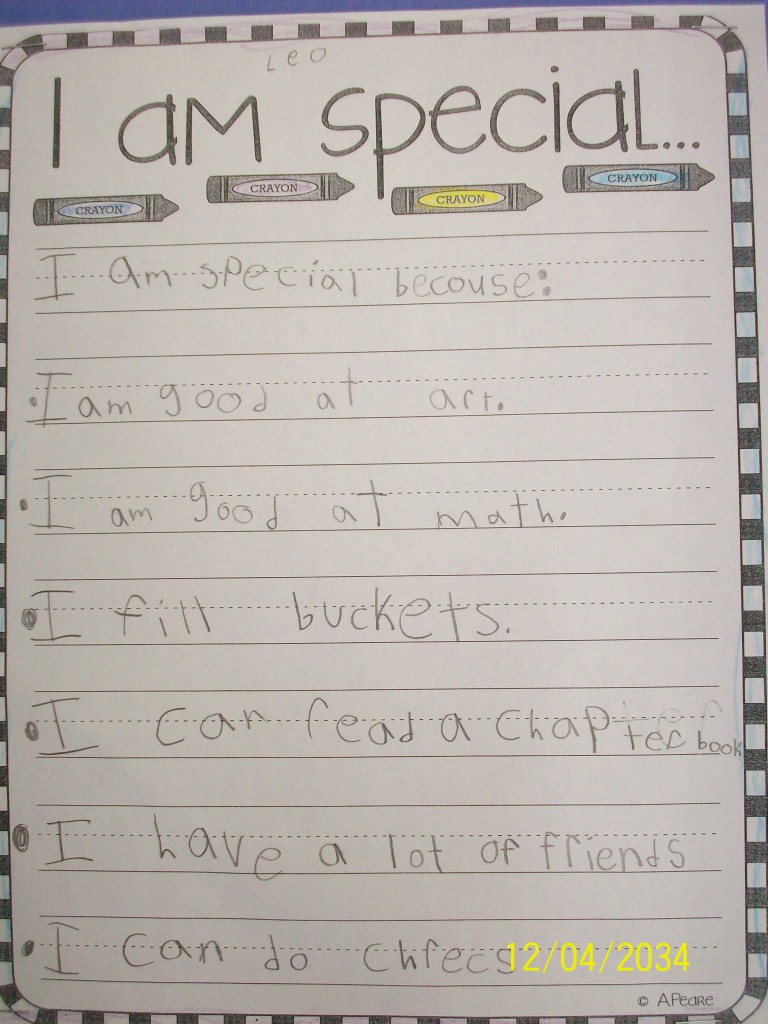 Leo
I am special...
CRAYON CRAYON CRAYON CRAYON
I am special becouse:
• I am good at art.
• I am good at math.
• I fill buckets.
• I can read a chapter book
• I have a lot of friends
• I can do chfecs
12/04/2034
© APeare